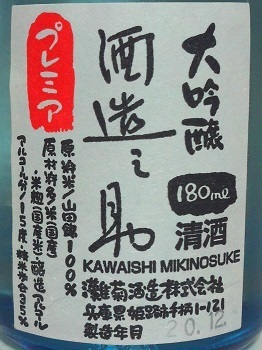 大吟醸
180mℓ
清酒
酒造之助
KAWAISHI MIKINOSUKE
プレミア
原料米/山田錦100%
原材料/米(国産)
・米麹(国産米)・醸造アルコール
アルコール分/15度・精米歩合35%
灘菊酒造株式会社
兵庫県姫路市手柄1-121
製造年月
20.12